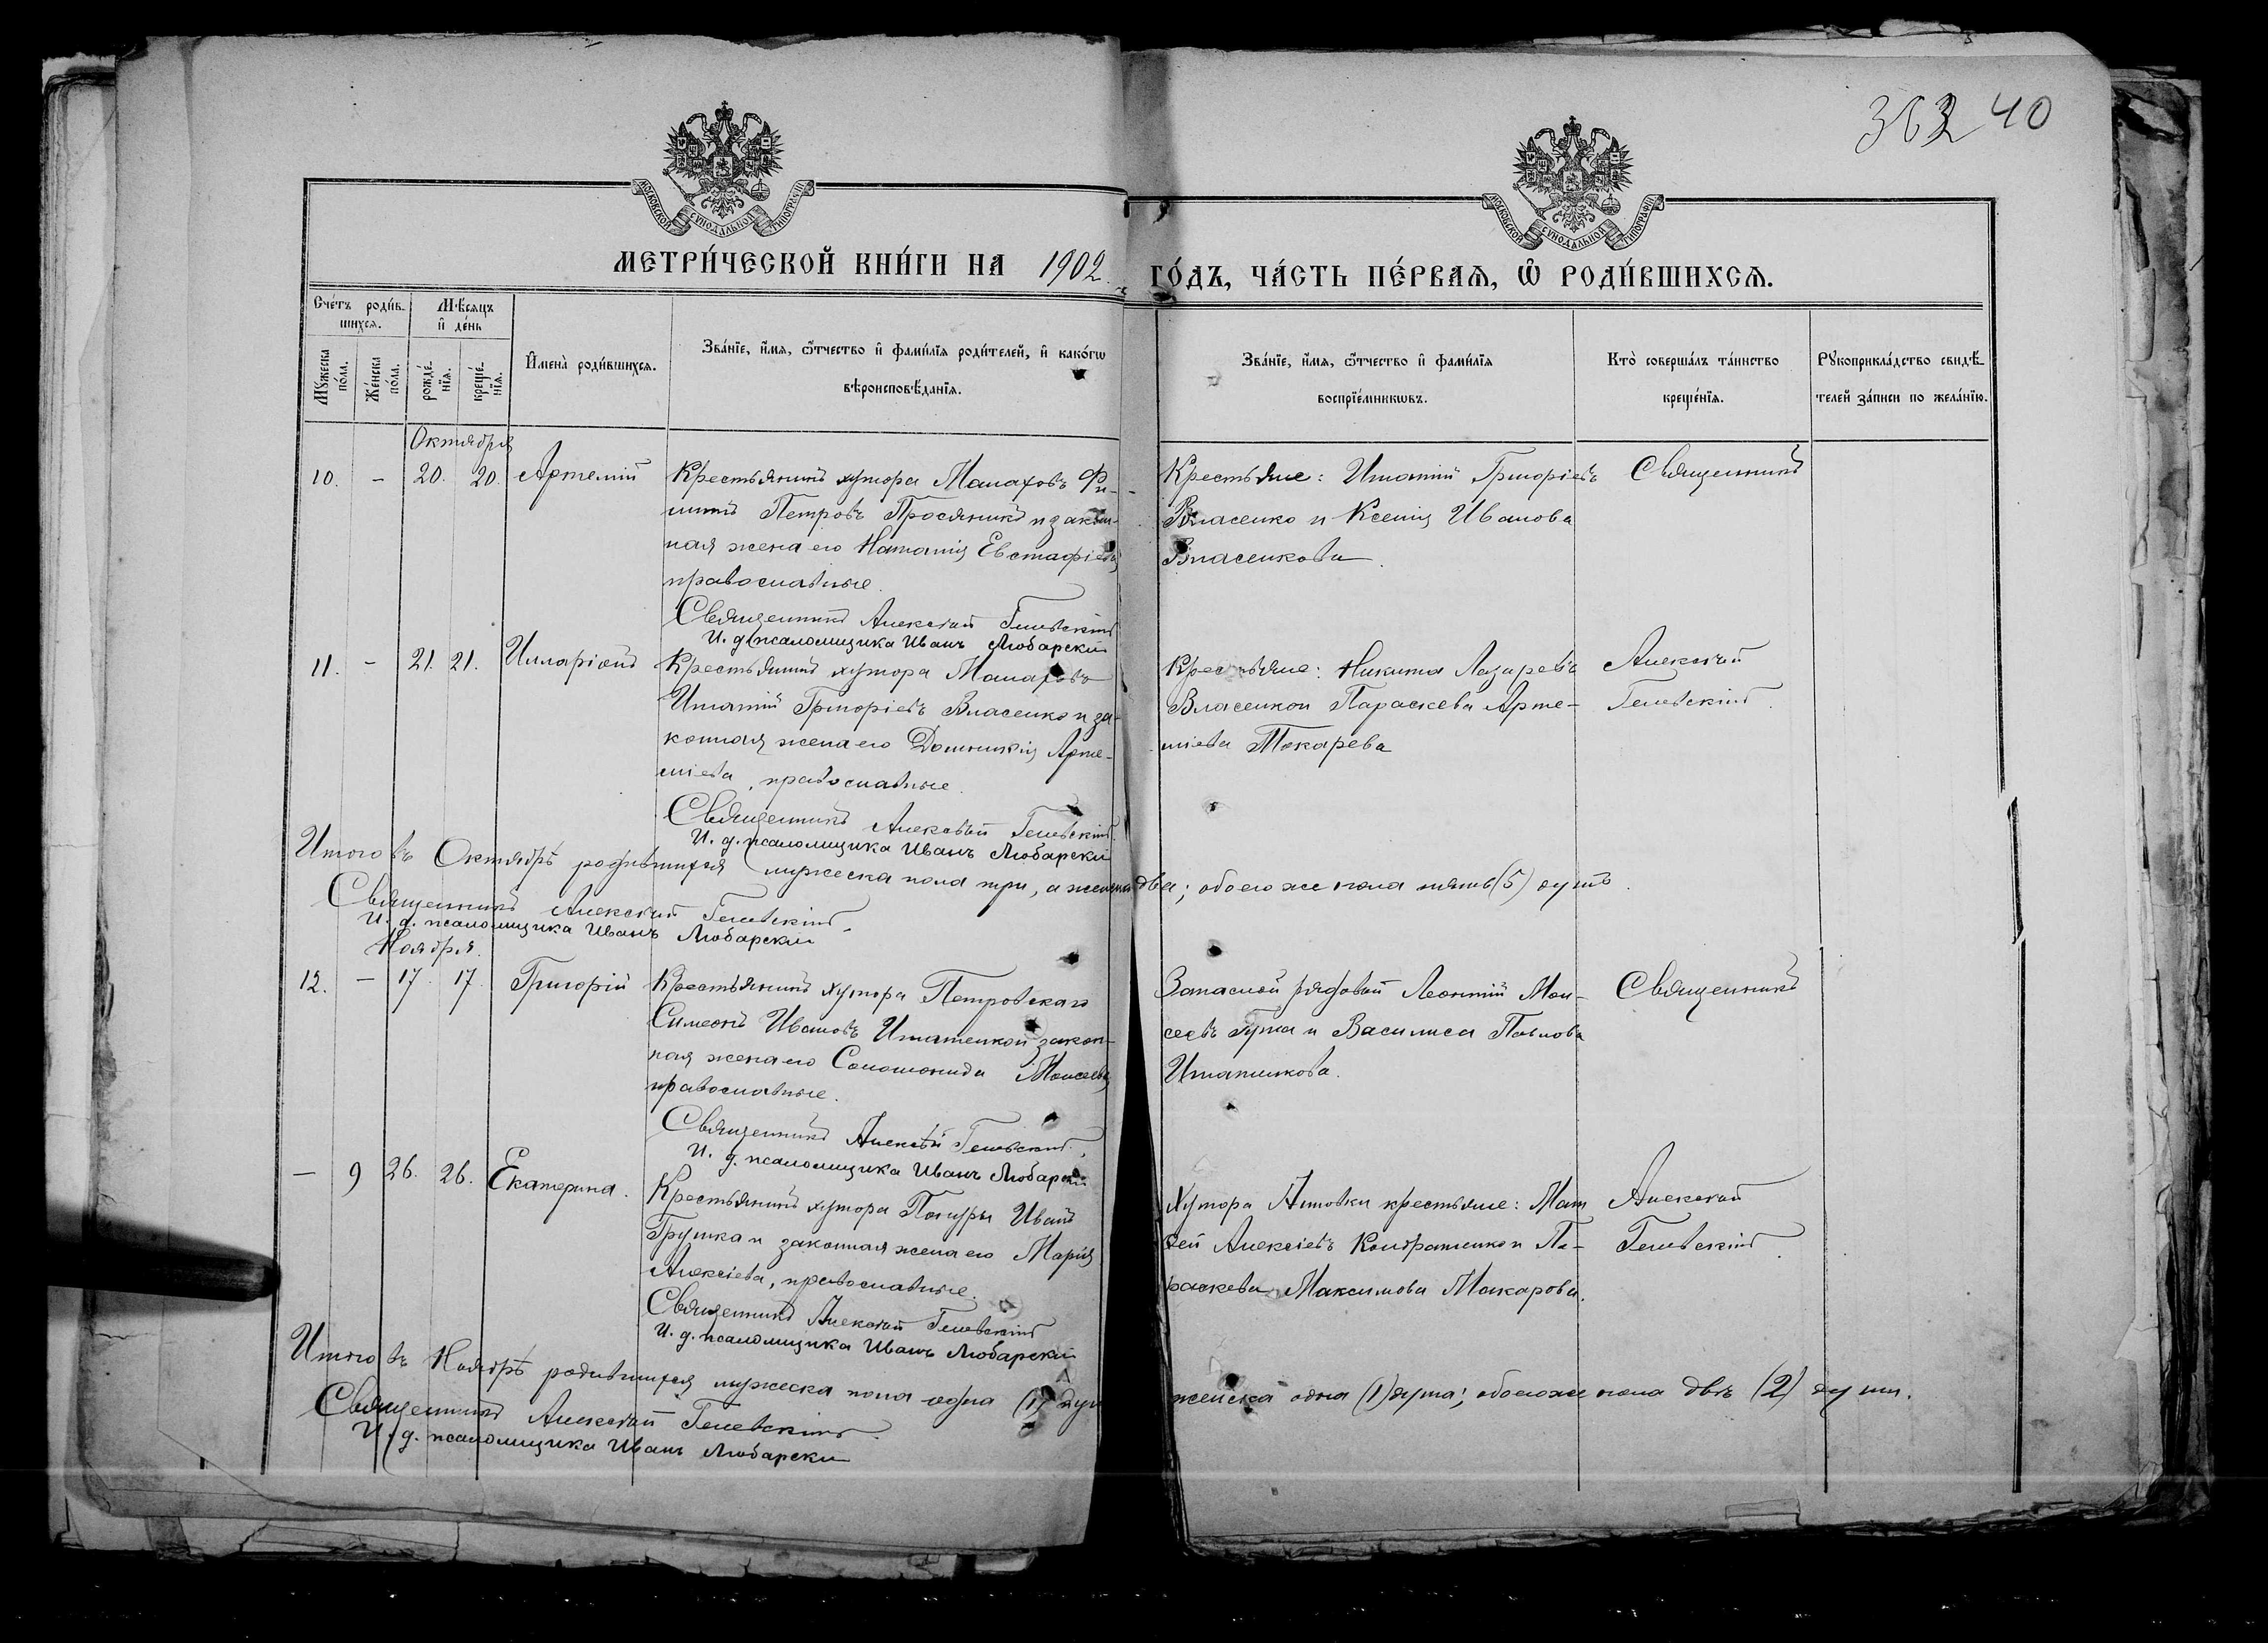 362 40
МОСКОВСКОЙ СѴНОДАЛЬНОЙ ТИПОГРАФІИ
МОСКОВСКОЙ СѴНОДАЛЬНОЙ ТИПОГРАФІИ
МЕТРИ́ЧЕСКОЙ КНИ́ГИ НА 1902 ГО́ДЪ, ЧА́СТЬ ПЕ́РВАѦ, Ѿ РОДИ́ВШИХСѦ.
Сче́тъ роди́в-
шихсѧ.
Мꙋ́жеска по́ла.
Же́нска по́ла.
Мѣ́сѧцъ
и҆ де́нь
рожде́-
нїѧ.
креще́-
нїѧ.
И҆мена̀ роди́вшихсѧ.
Зва́нїе, и҆́мѧ, ѻ҆́тчество и҆ фами́лїѧ роди́телей, и҆ како́гѡ
вѣроисповѣ́данїѧ.
Зва́нїе, и҆́мѧ, ѻ҆́тчество и҆ фами́лїѧ
воспрїе́мникѡвъ.
Кто̀ соверша́лъ та́инство
креще́нїѧ.
Рꙋкоприкла́дство свидѣ́-
телей за́писи по жела́нїю.
Октября
10. – 20. 20. Артемій
Крестьянинъ хутора Малахова Фи-
липпъ Петровъ Просяникъ и закон-
ная жена его Наталія Евстафіева
православные.
Священникъ Алексій
И. д. псаломщика Иванъ Любарскій
Крестьяне: Игнатій Григоріевъ
Власенко и Ксенія Иванова
Власенкова.
Священникъ
11. – 21. 21. Илларіонъ
Крестьянинъ хутора Малахова
Игнатій Григоріевъ Власенко и за-
конная жена его Домникія Арте-
міева, православные.
Священникъ Алексій
И. д. псаломщика Иванъ Любарскій
Крестьяне: Никита Лазаревъ
Власенко и Параскева Арте-
міева Токарева
Алексій
Итого въ Октябрѣ родившихся мужеска пола три, а женска два; обоего же пола пять (5) душъ.
Священникъ Алексій
И. д. псаломщика Иванъ Любарскій
Ноября.
12. – 17. 17. Григорій
Крестьянинъ хутора Петровскаго
Симеонъ Ивановъ Игнатенко и закон-
ная жена его Соломонида Моисеева
православные.
Священникъ Алексій
И. д. псаломщика Иванъ Любарскій
Запасной рядовой Леонтій Мои-
сеевъ и Василиса Павлова
Игнатенкова.
Священникъ
– 9 26. 26. Екатерина.
Крестьянинъ хутора Иванъ
Грушка и законная жена его Марія
Алексіева, православные.
Священникъ Алексій
И. д. псаломщика Иванъ Любарскій
Хутора крестьяне: Мат-
вей Алексіевъ Кондратенко и Па-
раскева Максимова Макарова.
Алексій
Итого въ Ноябрѣ родившихся мужеска пола одна (1) душа женска одна (1) душа; обоего же пола двѣ (2) души.
Священникъ Алексій
И. д. псаломщика Иванъ Любарскій